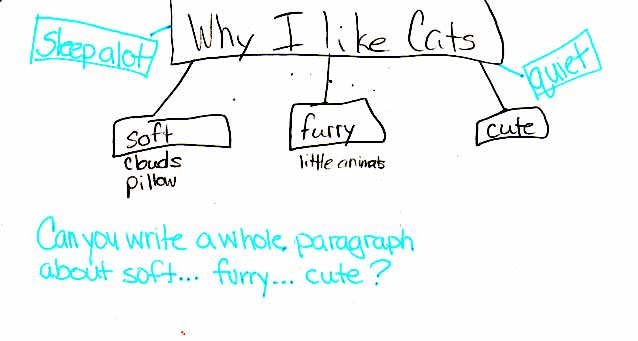 Why I like Cats
Sleep alot
quiet
soft
clouds
pillow
furry
little animals
cute
Can you write a whole paragraph
about soft... furry... cute?